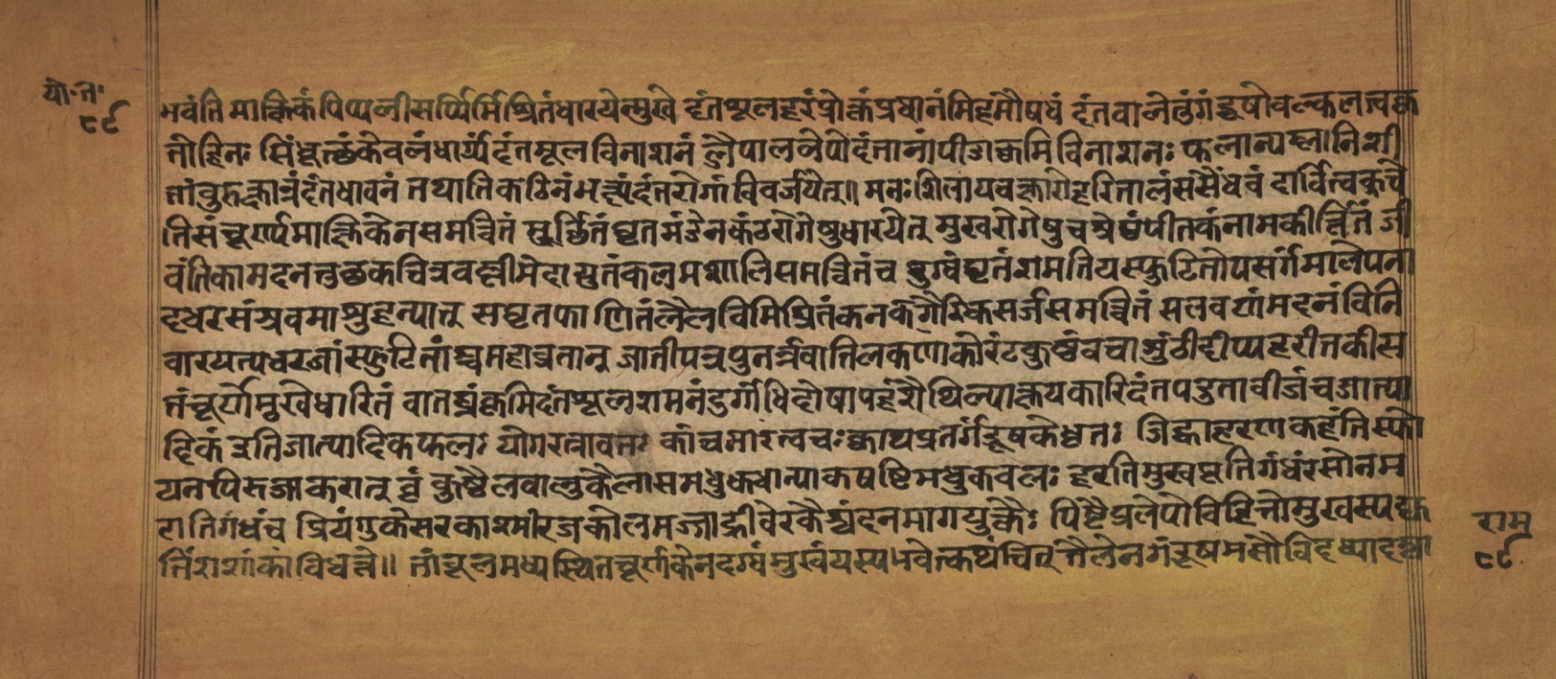 यो॰त॰
८९
भवंति माक्षिकंपिप्पलीसर्प्पिर्मिश्रितंधारयेन्मुखे दंतशूलहरंप्रोक्तंप्रधानंमिदमौषधं दंतचालेतुंगंडूषोवल्कलत्वक्क
तोहितः सिंधूत्थंकेवलंधार्य्यंदंतमूलविनाशनं लेपोदंतानांपीडाक्रमिविनाशनः फलान्यम्लानिशी
तांबुरुक्षान्नंदंतधावनं तथातिकठिनंभक्ष्यंदंतरोगी विवर्जयेत्॥ मनःशिलायवक्षारोहरितालंससैंधवं दार्वित्वक्चे
तिसंचूर्ण्यमाक्षिकेनसमन्वितं मूर्छितंघृतमंडेनकंठरोगेषुधारयेत् मुखरोगेषुचश्रेष्ठंपीतकंनामकीर्त्तितं जी
वंतिकामदनतुछकचित्रवल्लीमेदासुतंकलमशालिसमन्वितंच दुग्धंघृतंशमतियस्फुटितोपसर्गमालेपना
दधरसंश्रवमाशुहन्यात् सघृतफाणितंतैलविमिश्रितंकनकगैरिकसर्जसमन्वितं सलवणंमदनंविनि
वारयत्यधरजांस्फुटितांश्चमहाव्रतान् जातीपत्रपुनर्न्नवातिलकणाकोरंटकुष्ठंवचाशुंठीदीप्यहरीतकीस
मंचूर्णंमुखेधारितं वातघ्नंक्रमिदंतशूलशमनंदुर्गंधिदोषापहंशैथिल्यक्षयकारिदंतपटुताबीजंचजात्या
दिकं इतिजात्यादिकफलः योगरत्नावलः कांचनारत्वचःक्वाथप्रतर्गंडूषकेधृतः जिह्वाहरणकहंतिस्फो
यनपिरुजाकरान् कुष्ठैलवालुकैलासमधुकधान्याकषष्टिमधुकवलः हरतिमुखपूतिगंधंरसोनम
रातिगंधंच प्रियंगुकेसरकाश्मीरजकोलमज्जाह्रीवेरकैश्चंदनमागयुक्तैः पिष्टैप्रलेपोविहितोमुखस्यह
र्निशाशांकांविधत्ते॥ तांबूलमध्यस्थितचूर्णकेनदग्धंमुखंयस्यभवेत्कथंचित् तैलेनगंडूषमसौविदध्यादम्ला
राम
८९